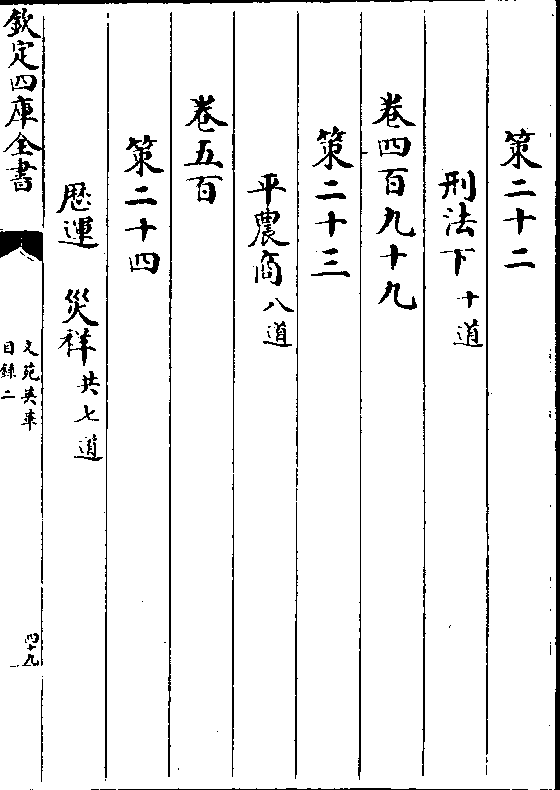 策二十二
刑法下十道
卷四百九十九
策二十三
平農商八道
卷五百
策二十四
厯運　災祥共七道
欽定四庫全書
文苑英華
目錄二
四十九